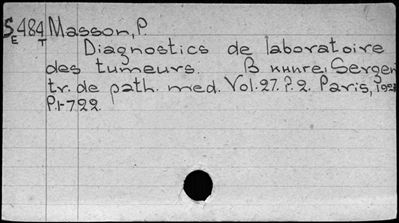 S E 484 T Masson, P.
Diagnostics de laboratoire
des tumeurs. В книге: Sergent
tr. de path. med. Vol. 27. P. 2. Paris,
P. 1-722.